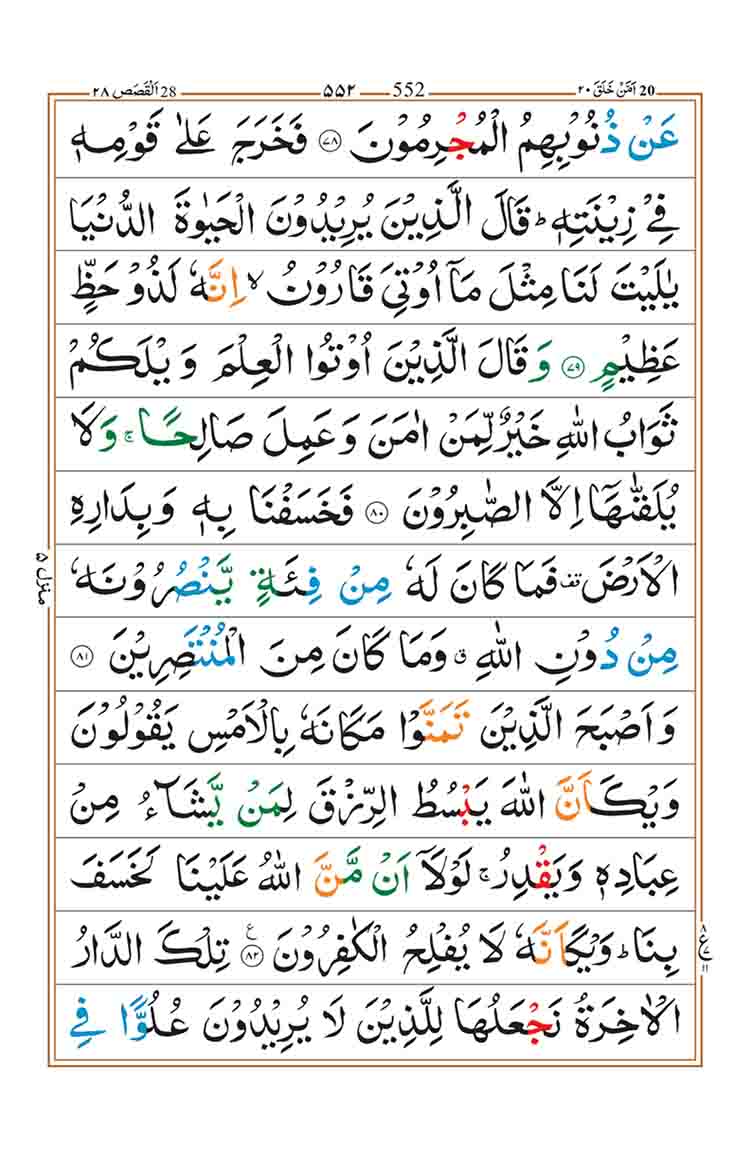 20 اَمَّنْ خَلَقَ ۲۰ 552 ۵۵۲ 28 اَلْقَصَص ۲۸
عَنْ ذُنُوْبِهِمُ الْمُجْرِمُوْنَ ﴿۷۸﴾ فَخَرَجَ عَلٰى قَوْمِهٖ
فِيْ زِيْنَتِهٖ ؕ قَالَ الَّذِيْنَ يُرِيْدُوْنَ الْحَيٰوةَ الدُّنْيَا
يٰلَيْتَ لَنَا مِثْلَ مَاۤ اُوْتِيَ قَارُوْنُ ۙ اِنَّهٗ لَذُوْ حَظٍّ
عَظِيْمٍ ﴿۷۹﴾ وَ قَالَ الَّذِيْنَ اُوْتُوا الْعِلْمَ وَيْلَكُمْ
ثَوَابُ اللّٰهِ خَيْرٌ لِّمَنْ اٰمَنَ وَ عَمِلَ صَالِحًا ۚ وَ لَا
يُلَقّٰىهَاۤ اِلَّا الصّٰبِرُوْنَ ﴿۸۰﴾ فَخَسَفْنَا بِهٖ وَ بِدَارِهِ
الْاَرْضَ ۫ قف فَمَا كَانَ لَهٗ مِنْ فِئَةٍ يَّنْصُرُوْنَهٗ
مِنْ دُوْنِ اللّٰهِ ۗ ق وَمَا كَانَ مِنَ الْمُنْتَصِرِيْنَ ﴿۸۱﴾
وَ اَصْبَحَ الَّذِيْنَ تَمَنَّوْا مَكَانَهٗ بِالْاَمْسِ يَقُوْلُوْنَ
وَيْكَاَنَّ اللّٰهَ يَبْسُطُ الرِّزْقَ لِمَنْ يَّشَآءُ مِنْ
عِبَادِهٖ وَيَقْدِرُ ۚ لَوْلَاۤ اَنْ مَّنَّ اللّٰهُ عَلَيْنَا لَخَسَفَ
بِنَا ؕ وَيْكَاَنَّهٗ لَا يُفْلِحُ الْكٰفِرُوْنَ ﴿۸۲﴾ ع تِلْكَ الدَّارُ
الْاٰخِرَةُ نَجْعَلُهَا لِلَّذِيْنَ لَا يُرِيْدُوْنَ عُلُوًّا فِي
منزل ۵
۸
ع ۷
۱۱